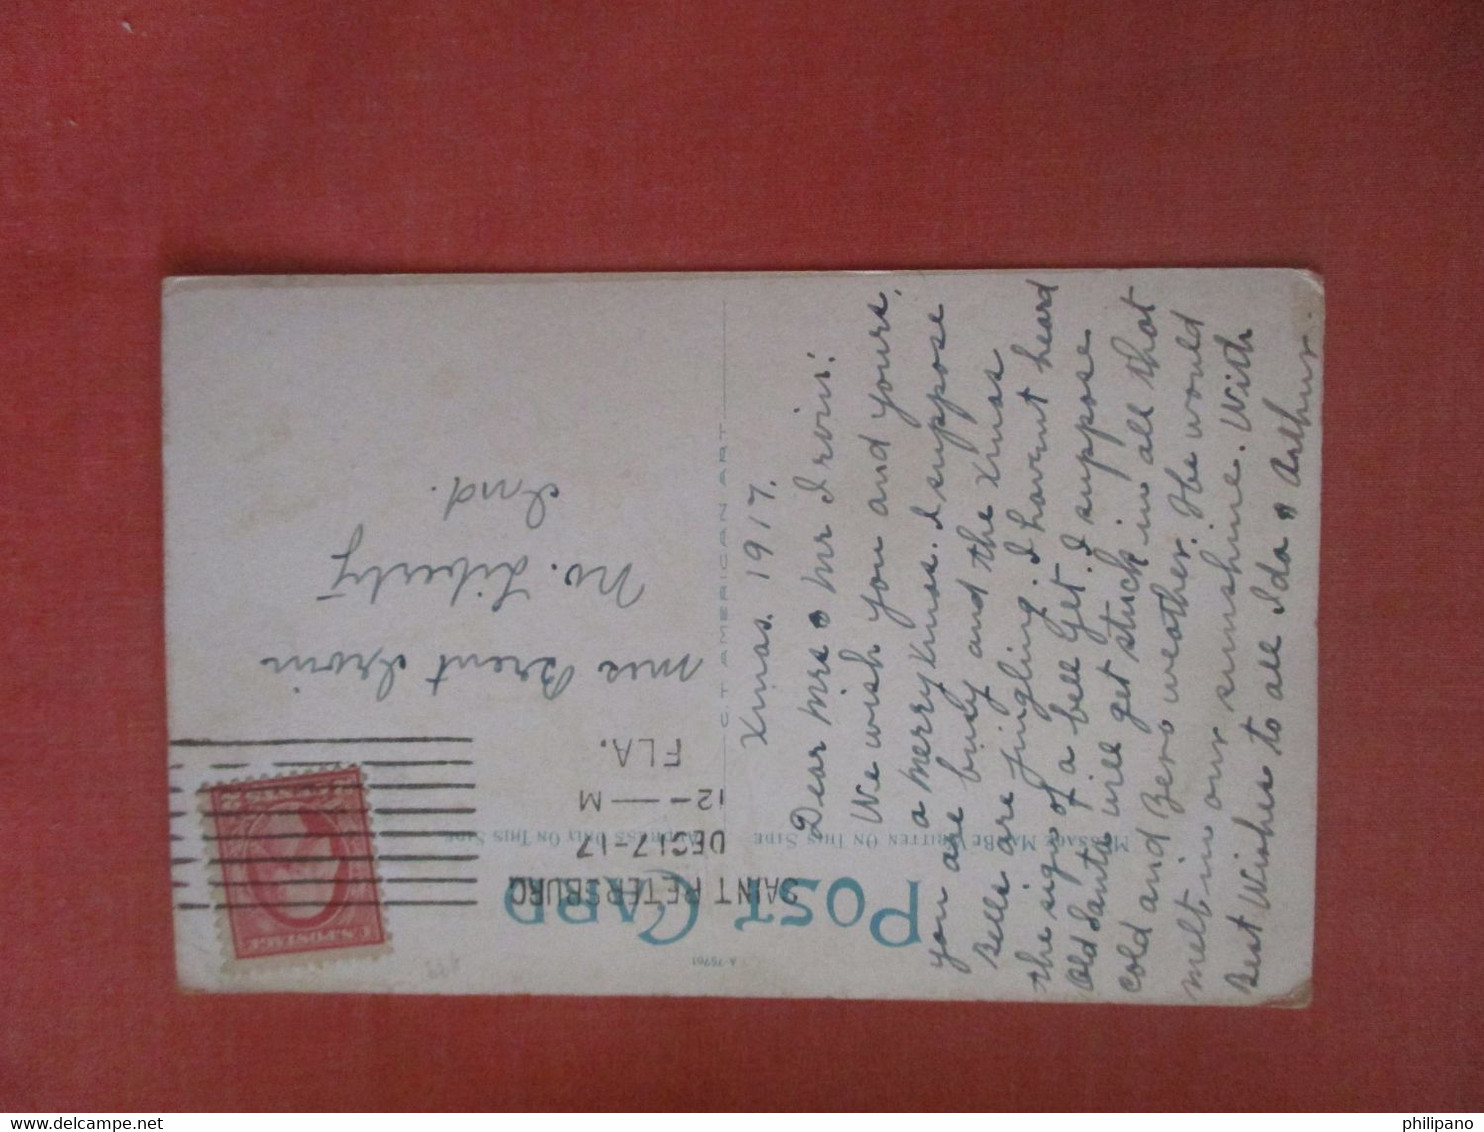 POST CARD
A-75761
MESSAGE MAY BE WRITTEN ON THIS SIDE
ADDRESS ONLY ON THIS SIDE
SAINT PETERSBURG
DEC 17-17
12 — M
FLA.
U.S. POSTAGE
2 CENTS 2
C. T. AMERICAN ART
Xmas. 1917.
Dear Mrs & Mr Irvin:
We wish you and yours,
a merry Xmas. I suppose
you are busy and the Xmas
Bells are jingling. I havent heard
the sign of a bell yet. I suppose
Old Santa will get stuck in all that
cold and Zero weather. He would
melt in our sunshine. With
Best Wishes to all Ida & Arthur.
Mrs Brent Irvin
No. Liberty
Ind.
philipano
delcampe.net